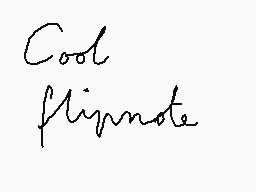 Cool
flipnote